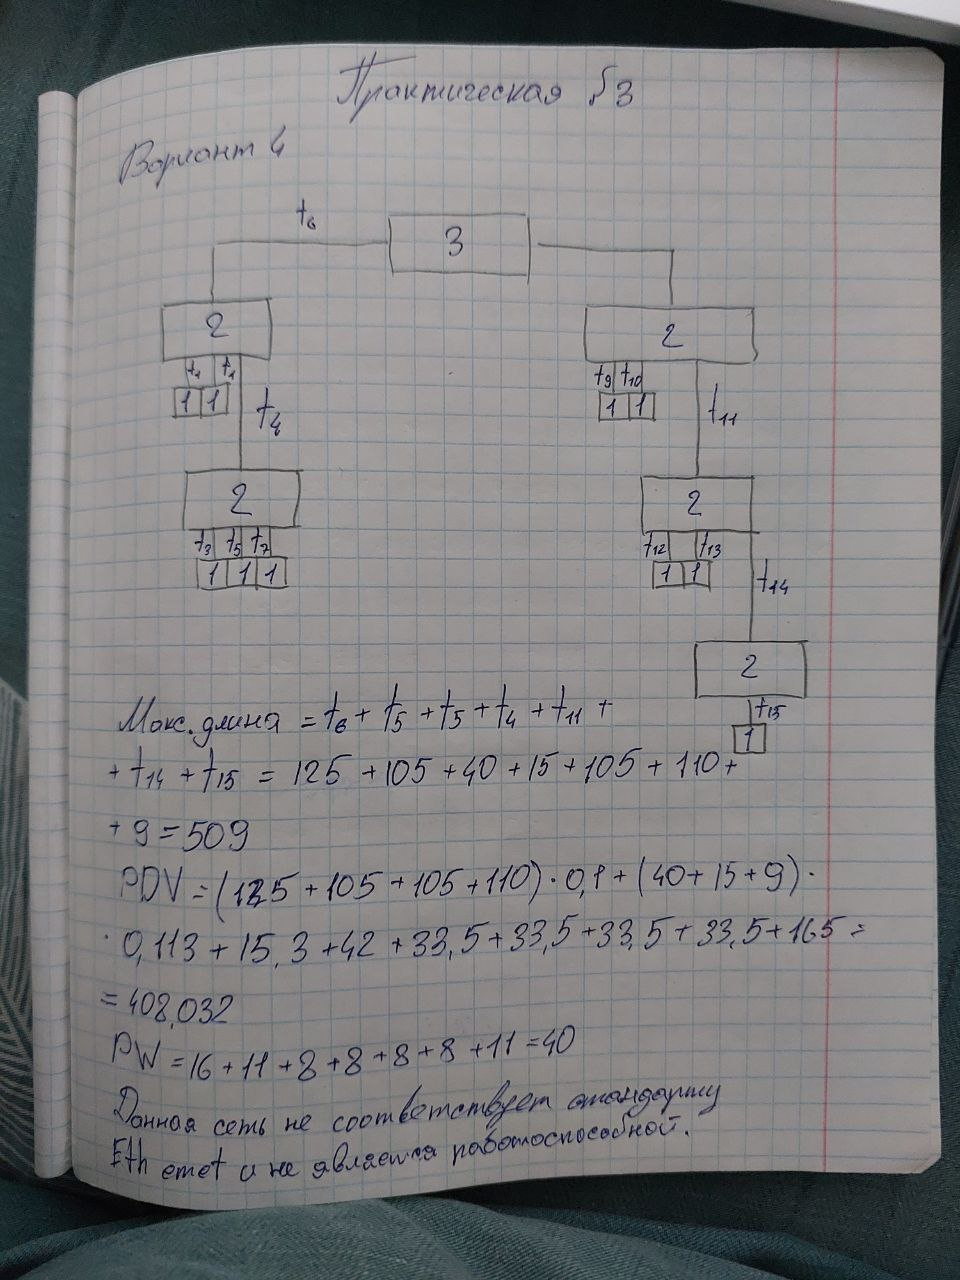 Практическая №3
Вариант 4
t6
3
2
2
t1 t1
t9 t10
1 1
1 1
t4
t11
2
2
t3 t5 t7
t12 t13
1 1 1
1 1
t14
2
t15
1
Макс. длина = t6 + t5 + t5 + t4 + t11 +
+ t14 + t15 = 125 + 105 + 40 + 15 + 105 + 110 +
+ 9 = 509
PDV = (125 + 105 + 105 + 110) · 0,1 + (40 + 15 + 9) ·
· 0,113 + 15,3 + 42 + 33,5 + 33,5 + 33,5 + 33,5 + 165 =
= 408,032
PW = 16 + 11 + 8 + 8 + 8 + 8 + 11 = 40
Данная сеть не соответствует стандарту
Ethernet и не является работоспособной.